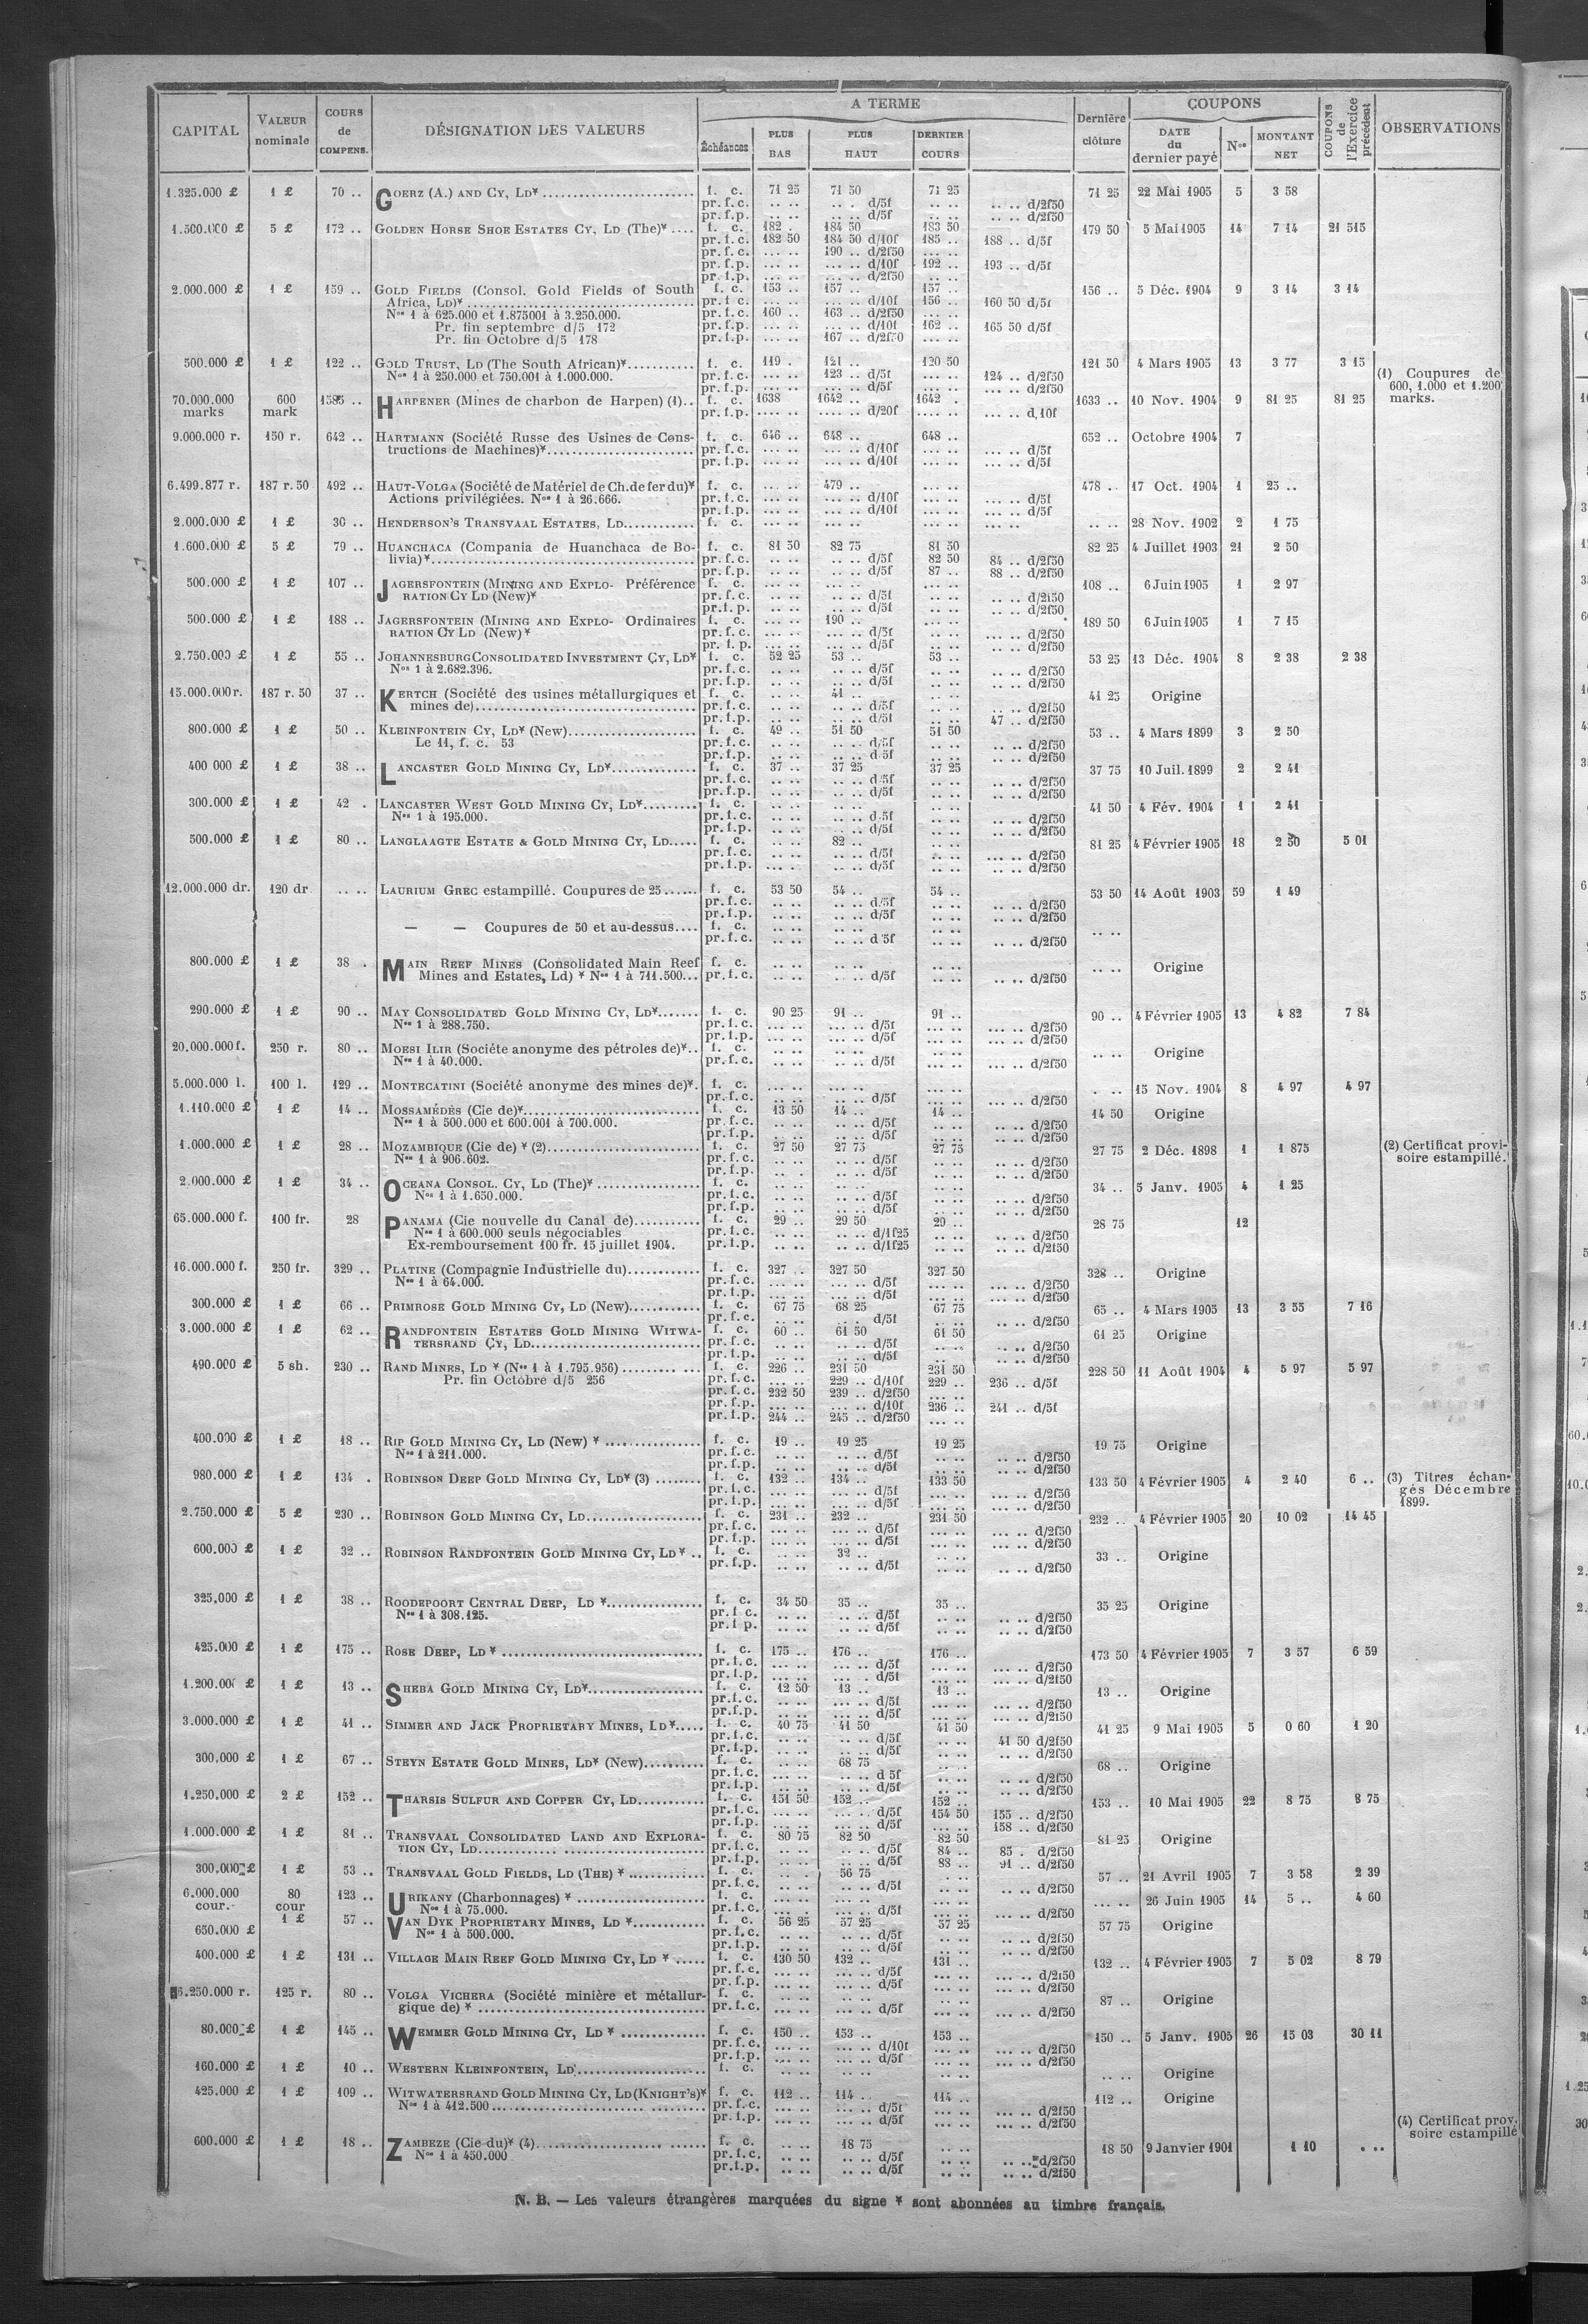 CAPITAL | VALEUR nominale | COURS de COMPENS. | DÉSIGNATION DES VALEURS | A TERME | Échéances | PLUS BAS | PLUS HAUT | DERNIER COURS | Dernière clôture | COUPONS | DATE du dernier payé | Nos | MONTANT NET | COUPONS de l'Exercice précédent | OBSERVATIONS
1.325.000 £ | 1 £ | 70 .. | GOERZ (A.) AND CY, LD¥ | f. c. | 71 25 | 71 50 | 71 25 | 71 25 | 22 Mai 1905 | 5 | 3 58
pr. f. c. | .. .. | .. . d/5f | .. .. | .. .. d/2f50
pr. f. p. | .. .. | .. .. d/5f | .. .. | .. .. d/2f50
1.500.000 £ | 5 £ | 172 .. | GOLDEN HORSE SHOE ESTATES CY, LD (The)¥ .... | f. c. | 182 . | 184 50 | 183 50 | 179 50 | 5 Mai 1905 | 14 | 7 14 | 21 515
pr. f. c. | 182 50 | 184 50 d/10f | 185 .. | 188 .. d/5f
pr. f. c. | ... .. | 190 .. d/2f50 | ... ..
pr. f. p. | ... .. | ... .. d/10f | 192 .. | 193 .. d/5f
pr. f. p. | ... .. | ... .. d/2f50
2.000.000 £ | 1 £ | 159 .. | GOLD FIELDS (Consol. Gold Fields of South | f. c. | 153 .. | 157 .. | 157 .. | 156 .. | 5 Déc. 1904 | 9 | 3 14 | 3 14
Africa, LD)¥ | pr. f. c. | ... .. | ... .. d/10f | 156 .. | 160 50 d/5f
Nos 1 à 625.000 et 1.875001 à 3.250.000. | pr. f. c. | 160 .. | 163 .. d/2f50 | ... ..
Pr. fin septembre d/5 172 | pr. f. p. | ... .. | ... .. d/10f | 162 .. | 165 50 d/5f
Pr. fin Octobre d/5 178 | pr. f. p. | ... .. | 167 .. d/2f50 | ... ..
500.000 £ | 1 £ | 122 .. | GOLD TRUST, LD (The South African)¥ | f. c. | 119 . | 121 .. | 120 50 | 121 50 | 4 Mars 1905 | 13 | 3 77 | 3 15
Nos 1 à 250.000 et 750.001 à 1.000.000. | pr. f. c. | ... .. | 123 .. d/5f | ... .. | 124 .. d/2f50 | (1) Coupures de
pr. f. p. | ... .. | ... .. d/5f | ... .. | ... .. d/2f50 | 600, 1.000 et 1.200
70.000.000 marks | 600 mark | 1585 .. | HARPENER (Mines de charbon de Harpen) (1).. | f. c. | 1638 | 1642 .. | 1642 . | 1633 .. | 10 Nov. 1904 | 9 | 81 25 | 81 25 | marks.
pr. f. p. | .... .. | .... .. d/20f | .... .. | ... .. d,10f
9.000.000 r. | 150 r. | 642 .. | HARTMANN (Société Russe des Usines de Cons- | f. c. | 646 .. | 648 .. | 648 .. | 652 .. | Octobre 1904 | 7
tructions de Machines)¥ | pr. f. c. | ... .. | ... .. d/10f | ... .. | ... .. d/5f
pr. f. p. | ... .. | ... .. d/10f | ... .. | ... .. d/5f
6.499.877 r. | 187 r. 50 | 492 .. | HAUT-VOLGA (Société de Matériel de Ch. de fer du)¥ | f. c. | ... .. | 479 .. | ... .. | 478 .. | 17 Oct. 1904 | 1 | 25 ..
Actions privilégiées. Nos 1 à 26.666. | pr. f. c. | ... .. | ... .. d/10f | ... .. | ... .. d/5f
pr. f. p. | ... .. | ... .. d/10f | ... .. | ... .. d/5f
2.000.000 £ | 1 £ | 30 .. | HENDERSON'S TRANSVAAL ESTATES, LD | f. c. | ... .. | ... .. | ... .. | .. .. | 28 Nov. 1902 | 2 | 1 75
1.600.000 £ | 5 £ | 79 .. | HUANCHACA (Compania de Huanchaca de Bo- | f. c. | 81 50 | 82 75 | 81 50 | 82 25 | 4 Juillet 1903 | 21 | 2 50
livia)¥ | pr. f. c. | .. .. | .. .. d/5f | 82 50 | 84 .. d/2f50
pr. f. p. | .. .. | .. .. d/5f | 87 .. | 88 .. d/2f50
500.000 £ | 1 £ | 107 .. | JAGERSFONTEIN (MINING AND EXPLO- Préférence | f. c. | ... .. | ... .. | ... .. | 108 .. | 6 Juin 1905 | 1 | 2 97
RATION CY LD (New)¥ | pr. f. c. | ... .. | .. .. d/5f | ... .. | .. .. d/2f50
pr. f. p. | ... .. | .. .. d/5f | ... .. | .. .. d/2f50
500.000 £ | 1 £ | 188 .. | JAGERSFONTEIN (MINING AND EXPLO- Ordinaires | f. c. | ... .. | 190 .. | ... .. | 189 50 | 6 Juin 1905 | 1 | 7 15
RATION CY LD (New)¥ | pr. f. c. | ... .. | .. .. d/5f | ... .. | ... .. d/2f50
pr. f. p. | ... .. | .. .. d/5f | ... .. | ... .. d/2f50
2.750.000 £ | 1 £ | 55 .. | JOHANNESBURG CONSOLIDATED INVESTMENT CY, LD¥ | f. c. | 52 25 | 53 .. | 53 .. | 53 25 | 13 Déc. 1904 | 8 | 2 38 | 2 38
Nos 1 à 2.682.396. | pr. f. c. | .. .. | .. .. d/5f | .. .. | .. .. d/2f50
pr. f. p. | .. .. | .. .. d/5f | .. .. | .. .. d/2f50
15.000.000 r. | 187 r. 50 | 37 .. | KERTCH (Société des usines métallurgiques et | f. c. | .. .. | 41 .. | .. .. | 41 25 | Origine
mines de) | pr. f. c. | .. .. | .. .. d/5f | .. .. | .. .. d/2f50
pr. f. p. | .. .. | .. .. d/5f | .. .. | 47 .. d/2f50
800.000 £ | 1 £ | 50 .. | KLEINFONTEIN CY, LD¥ (New) | f. c. | 49 .. | 51 50 | 51 50 | 53 .. | 4 Mars 1899 | 3 | 2 50
Le 11, f. c. 53 | pr. f. c. | .. .. | .. .. d/5f | .. .. | .. .. d/2f50
pr. f. p. | .. .. | .. .. d 5f | .. .. | .. .. d/2f50
400 000 £ | 1 £ | 38 .. | LANCASTER GOLD MINING CY, LD¥ | f. c. | 37 .. | 37 25 | 37 25 | 37 75 | 10 Juil. 1899 | 2 | 2 41
pr. f. c. | .. .. | .. .. d 5f | .. .. | .. .. d/2f50
pr. f. p. | .. .. | .. .. d/5f | .. .. | .. .. d/2f50
300.000 £ | 1 £ | 42 . | LANCASTER WEST GOLD MINING CY, LD¥ | f. c. | .. .. | .. .. | .. .. | 41 50 | 4 Fév. 1904 | 1 | 2 41
Nos 1 à 195.000. | pr. f. c. | .. .. | .. .. d 5f | .. .. | .. .. d/2f50
pr. f. p. | .. .. | .. .. d/5f | .. .. | .. .. d/2f50
500.000 £ | 1 £ | 80 .. | LANGLAAGTE ESTATE & GOLD MINING CY, LD | f. c. | .. .. | 82 .. | .. .. | 81 25 | 4 Février 1905 | 18 | 2 50 | 5 01
pr. f. c. | .. .. | .. .. d/5f | .. .. | ... .. d/2f50
pr. f. p. | .. .. | .. .. d/5f | .. .. | ... .. d/2f50
12.000.000 dr. | 120 dr | .. .. | LAURIUM GREC estampillé. Coupures de 25 | f. c. | 53 50 | 54 .. | 54 .. | 53 50 | 14 Août 1903 | 59 | 1 49
pr. f. c. | .. .. | .. .. d/5f | .. .. | .. .. d/2f50
pr. f. p. | .. .. | .. .. d/5f | .. .. | .. .. d/2f50
— — Coupures de 50 et au-dessus | f. c. | .. .. | .. .. | .. .. | .. ..
pr. f. c. | .. .. | .. .. d 5f | .. .. | .. .. d/2f50
800.000 £ | 1 £ | 38 . | MAIN REEF MINES (Consolidated Main Reef | f. c. | .. .. | .. .. | .. .. | .. .. | Origine
Mines and Estates, Ld) ¥ Nos 1 à 711.500... | pr. f. c. | .. .. | .. .. d/5f | .. .. | .. .. d/2f50
290.000 £ | 1 £ | 90 .. | MAY CONSOLIDATED GOLD MINING CY, LD¥ | f. c. | 90 25 | 91 .. | 91 .. | 90 .. | 4 Février 1905 | 13 | 4 82 | 7 84
Nos 1 à 288.750. | pr. f. c. | .. .. | .. .. d/5f | .. .. | ... .. d/2f50
pr. f. p. | .. .. | .. .. d/5f | .. .. | ... .. d/2f50
20.000.000 f. | 250 r. | 80 .. | MOESI ILIR (Sociéte anonyme des pétroles de)¥.. | f. c. | .. .. | .. .. | .. .. | .. .. | Origine
Nos 1 à 40.000. | pr. f. c. | .. .. | .. .. d/5f | .. .. | .. .. d/2f50
5.000.000 l. | 100 l. | 129 .. | MONTECATINI (Société anonyme des mines de)¥. | f. c. | ... .. | ... .. | ... .. | . .. | 15 Nov. 1904 | 8 | 4 97 | 4 97
pr. f. c. | .. .. | .. .. d/5f | .. .. | ... .. d/2f50
1.110.000 £ | 1 £ | 14 .. | MOSSAMÉDÈS (Cie de)¥ | f. c. | 13 50 | 14 .. | 14 .. | 14 50 | Origine
Nos 1 à 500.000 et 600.001 à 700.000. | pr. f. c. | .. .. | .. .. d/5f | .. .. | .. .. d/2f50
pr. f. p. | .. .. | .. .. d/5f | .. .. | .. .. d/2f50
1.000.000 £ | 1 £ | 28 .. | MOZAMBIQUE (Cie de) ¥ (2) | f. c. | 27 50 | 27 75 | 27 75 | 27 75 | 2 Déc. 1898 | 1 | 1 875 | (2) Certificat provi-
Nos 1 à 906.602. | pr. f. c. | .. .. | .. .. d/5f | .. .. | .. .. d/2f50 | soire estampillé.
pr. f. p. | .. .. | .. .. d/5f | .. .. | .. .. d/2f50
2.000.000 £ | 1 £ | 34 .. | OCEANA CONSOL. CY, LD (The)¥ | f. c. | .. .. | .. .. | .. .. | 34 .. | 5 Janv. 1905 | 4 | 1 25
Nos 1 à 1.650.000. | pr. f. c. | .. .. | .. .. d/5f | .. .. | .. .. d/2f50
pr. f. p. | .. .. | .. .. d/5f | .. .. | .. .. d/2f50
65.000.000 f. | 100 fr. | 28 | PANAMA (Cie nouvelle du Canal de) | f. c. | 29 .. | 29 50 | 29 .. | 28 75 | 12
Nos 1 à 600.000 seuls négociables | pr. f. c. | .. .. | .. .. d/1f25 | .. .. | .. .. d/2f50
Ex-remboursement 100 fr. 15 juillet 1904. | pr. f. p. | .. .. | .. .. d/1f25 | .. .. | .. .. d/2f50
16.000.000 f. | 250 fr. | 329 .. | PLATINE (Compagnie Industrielle du) | f. c. | 327 .. | 327 50 | 327 50 | 328 .. | Origine
Nos 1 à 64.000. | pr. f. c. | ... .. | ... .. d/5f | ... .. | ... .. d/2f50
pr. f. p. | ... .. | ... .. d/5f | ... .. | ... .. d/2f50
300.000 £ | 1 £ | 66 .. | PRIMROSE GOLD MINING CY, LD (New) | f. c. | 67 75 | 68 25 | 67 75 | 65 .. | 4 Mars 1905 | 13 | 3 55 | 7 16
pr. f. c. | .. .. | .. .. d/5f | .. .. | .. .. d/2f50
3.000.000 £ | 1 £ | 62 .. | RANDFONTEIN ESTATES GOLD MINING WITWA- | f. c. | 60 .. | 61 50 | 61 50 | 61 25 | Origine
TERSRAND CY, LD | pr. f. c. | .. .. | .. .. d/5f | .. .. | .. .. d/2f50
pr. f. p. | .. .. | .. .. d/5f | .. .. | .. .. d/2f50
490.000 £ | 5 sh. | 230 .. | RAND MINES, LD ¥ (Nos 1 à 1.795.956) | f. c. | 226 .. | 231 50 | 231 50 | 228 50 | 11 Août 1904 | 4 | 5 97 | 5 97
Pr. fin Octobre d/5 256 | pr. f. c. | ... .. | 229 .. d/10f | 229 .. | 236 .. d/5f
pr. f. c. | 232 50 | 239 .. d/2f50 | ... ..
pr. f. p. | ... .. | ... .. d/10f | 236 .. | 241 .. d/5f
pr. f. p. | 244 .. | 245 .. d/2f50 | ... ..
400.000 £ | 1 £ | 18 .. | RIP GOLD MINING CY, LD (New) ¥ | f. c. | 19 .. | 19 25 | 19 25 | 19 75 | Origine
Nos 1 à 211.000. | pr. f. c. | .. .. | .. .. d/5f | .. .. | .. .. d/2f50
pr. f. p. | .. .. | .. .. d/5f | .. .. | .. .. d/2f50
980.000 £ | 1 £ | 134 . | ROBINSON DEEP GOLD MINING CY, LD¥ (3) | f. c. | 132 .. | 134 .. | 133 50 | 133 50 | 4 Février 1905 | 4 | 2 40 | 6 .. | (3) Titres échan-
pr. f. c. | ... .. | ... .. d/5f | ... .. | ... .. d/2f50 | gés Décembre
pr. f. p. | ... .. | ... .. d/5f | ... .. | ... .. d/2f50 | 1899.
2.750.000 £ | 5 £ | 230 .. | ROBINSON GOLD MINING CY, LD | f. c. | 231 .. | 232 .. | 231 50 | 232 .. | 4 Février 1905 | 20 | 10 02 | 14 45
pr. f. c. | ... .. | ... .. d/5f | ... .. | ... .. d/2f50
pr. f. p. | ... .. | ... .. d/5f | ... .. | ... .. d/2f50
600.000 £ | 1 £ | 32 .. | ROBINSON RANDFONTEIN GOLD MINING CY, LD ¥ .. | f. c. | .. .. | 32 .. | .. .. | 33 .. | Origine
pr. f. p. | .. .. | .. .. d/5f | .. .. | .. .. d/2f50
325.000 £ | 1 £ | 38 .. | ROODEPOORT CENTRAL DEEP, LD ¥ | f. c. | 34 50 | 35 .. | 35 .. | 35 25 | Origine
Nos 1 à 308.125. | pr. f c. | .. .. | .. .. d/5f | .. .. | .. .. d/2f50
pr. f p. | .. .. | .. .. d/5f | .. .. | .. .. d/2f50
425.000 £ | 1 £ | 175 .. | ROSE DEEP, LD ¥ | f. c. | 175 .. | 176 .. | 176 .. | 173 50 | 4 Février 1905 | 7 | 3 57 | 6 59
pr. f. c. | ... .. | ... .. d/5f | ... .. | ... .. d/2f50
pr. f. p. | ... .. | ... .. d/5f | ... .. | ... .. d/2f50
1.200.000 £ | 1 £ | 13 .. | SHEBA GOLD MINING CY, LD¥ | f. c. | 12 50 | 13 .. | 13 .. | 13 .. | Origine
pr. f. c. | .. .. | .. .. d/5f | .. .. | ... .. d/2f50
pr. f. p. | .. .. | .. .. d/5f | .. .. | ... .. d/2f50
3.000.000 £ | 1 £ | 41 .. | SIMMER AND JACK PROPRIETARY MINES, LD¥ | f. c. | 40 75 | 41 50 | 41 50 | 41 25 | 9 Mai 1905 | 5 | 0 60 | 1 20
pr. f. c. | .. .. | .. .. d/5f | .. .. | 41 50 d/2f50
pr. f. p. | .. .. | .. .. d/5f | .. .. | .. .. d/2f50
300.000 £ | 1 £ | 67 .. | STEYN ESTATE GOLD MINES, LD¥ (New) | f. c. | .. .. | 68 75 | .. .. | 68 .. | Origine
pr. f. c. | .. .. | .. .. d 5f | .. .. | .. .. d/2f50
pr. f. p. | .. .. | .. .. d/5f | .. .. | .. .. d/2f50
1.250.000 £ | 2 £ | 152 .. | THARSIS SULFUR AND COPPER CY, LD | f. c. | 151 50 | 152 .. | 152 .. | 153 .. | 10 Mai 1905 | 22 | 8 75 | 8 75
pr. f. c. | ... .. | ... .. d/5f | 154 50 | 155 .. d/2f50
pr. f. p. | ... .. | ... .. d/5f | ... .. | 158 .. d/2f50
1.000.000 £ | 1 £ | 81 .. | TRANSVAAL CONSOLIDATED LAND AND EXPLORA- | f. c. | 80 75 | 82 50 | 82 50 | 81 25 | Origine
TION CY, LD | pr. f. c. | .. .. | .. .. d/5f | 84 .. | 85 . d/2f50
pr. f. p. | .. .. | .. .. d/5f | 88 .. | 91 .. d/2f50
300.000 £ | 1 £ | 53 .. | TRANSVAAL GOLD FIELDS, LD (THE) ¥ | f. c. | .. . | 56 75 | .. .. | 57 .. | 21 Avril 1905 | 7 | 3 58 | 2 39
pr. f. c. | .. .. | .. .. d/5f | .. .. | .. .. d/2f50
6.000.000 cour. | 80 cour | 123 .. | URIKANY (Charbonnages) ¥ | f. c. | ... .. | ... .. | ... .. | ... .. | 26 Juin 1905 | 14 | 5 .. | 4 60
Nos 1 à 75.000. | pr. f. c. | ... .. | ... .. d/5f | ... .. | ... .. d/2f50
650.000 £ | 1 £ | 57 .. | VAN DYK PROPRIETARY MINES, LD ¥ | f. c. | 56 25 | 57 25 | 57 25 | 57 75 | Origine
Nos 1 à 500.000. | pr. f. c. | .. .. | .. .. d/5f | .. .. | .. .. d/2f50
pr. f. p. | .. .. | .. .. d/5f | .. .. | .. .. d/2f50
400.000 £ | 1 £ | 131 .. | VILLAGE MAIN REEF GOLD MINING CY, LD ¥ | f. c. | 130 50 | 132 .. | 131 .. | 132 .. | 4 Février 1905 | 7 | 5 02 | 8 79
pr. f. c. | ... .. | ... .. d/5f | ... .. | ... .. d/2f50
pr. f. p. | ... .. | ... .. d/5f | ... .. | ... .. d/2f50
6.250.000 r. | 125 r. | 80 .. | VOLGA VICHERA (Société minière et métallur- | f. c. | .. .. | .. .. | .. .. | 87 .. | Origine
gique de) ¥ | pr. f. c. | ... .. | ... .. d/5f | ... .. | ... .. d/2f50
80.000 £ | 1 £ | 145 .. | WEMMER GOLD MINING CY, LD ¥ | f. c. | 150 .. | 153 .. | 153 .. | 150 .. | 5 Janv. 1905 | 26 | 15 03 | 30 11
pr. f. c. | ... .. | ... .. d/10f | ... .. | ... .. d/2f50
pr. f. p. | ... .. | ... .. d/5f | ... .. | ... .. d/2f50
160.000 £ | 1 £ | 10 .. | WESTERN KLEINFONTEIN, LD | f. c. | .. .. | .. .. | .. .. | .. .. | Origine
425.000 £ | 1 £ | 109 .. | WITWATERSRAND GOLD MINING CY, LD (KNIGHT'S)¥ | f. c. | 112 .. | 114 .. | 114 .. | 112 .. | Origine
Nos 1 à 412.500 | pr. f. c. | ... .. | ... .. d/5f | ... .. | ... .. d/2f50
pr. f. p. | ... .. | ... .. d/5f | ... .. | ... .. d/2f50 | (4) Certificat prov.
soire estampillé
600.000 £ | 1 £ | 18 .. | ZAMBEZE (Cie du)¥ (4) | f. c. | .. .. | 18 75 | .. .. | 18 50 | 9 Janvier 1901 | 1 10 | . ..
Nos 1 à 450.000 | pr. f. c. | .. .. | .. .. d/5f | .. .. | .. .. d/2f50
pr. f. p. | .. .. | .. .. d/5f | .. .. | .. .. d/2f50
N. B. — Les valeurs étrangères marquées du signe ¥ sont abonnées au timbre français.